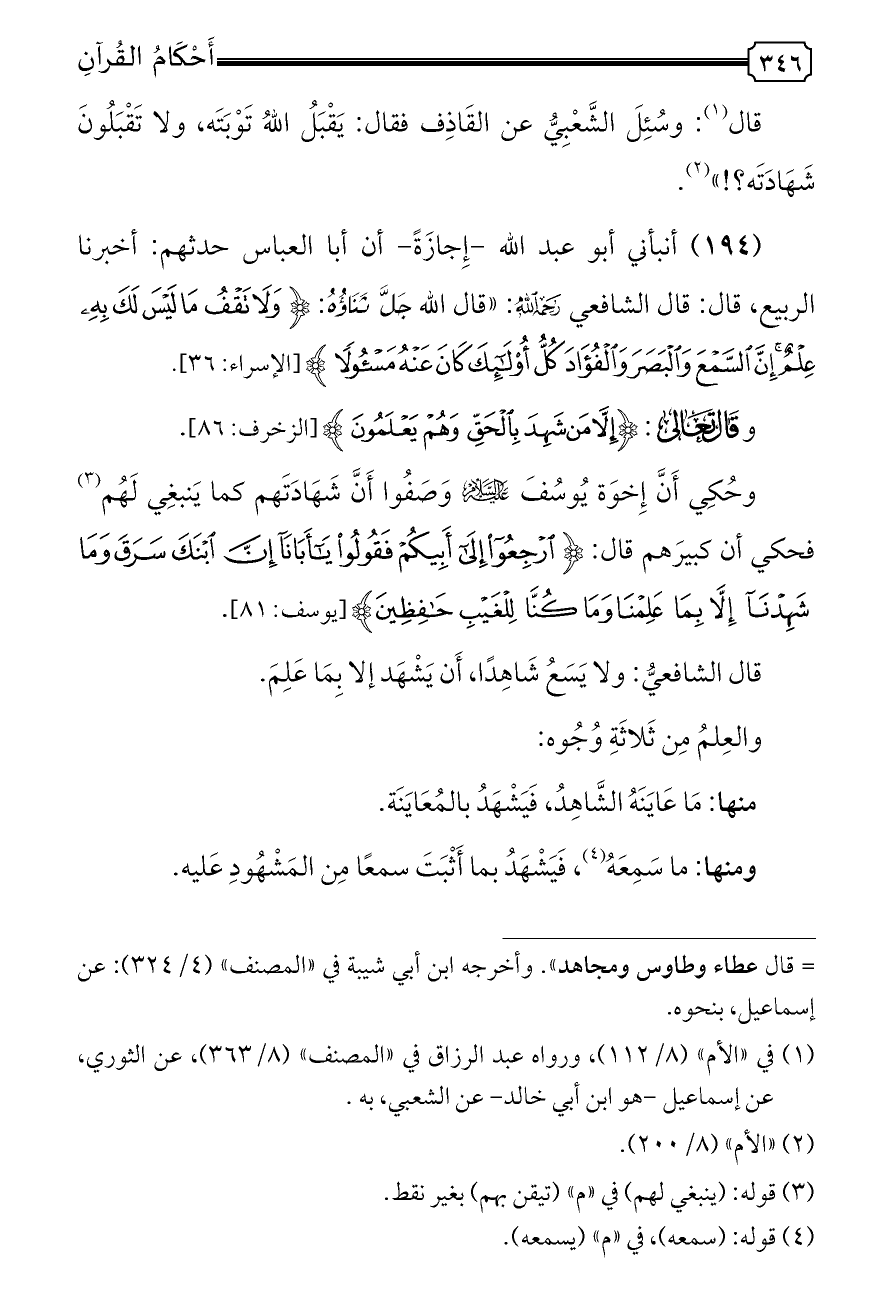 ٣٤٦ أَحْكَامُ القُرآنِ
قال(١): وسُئِلَ الشَّعْبِيُّ عن القَاذِف فقال: يَقْبَلُ اللهُ تَوْبَتَه، ولا تَقْبَلُونَ
شَهَادَتَه؟!»(٢).
(١٩٤) أنبأني أبو عبد الله -إِجازَةً- أن أبا العباس حدثهم: أخبرنا
الربيع، قال: قال الشافعي رَحِمَهُ اللَّهُ: «قال الله جَلَّ ثَنَاؤُهُ: ﴿ وَلَا تَقْفُ مَا لَيْسَ لَكَ بِهِۦ
عِلْمٌۚ إِنَّ ٱلسَّمْعَ وَٱلْبَصَرَ وَٱلْفُؤَادَ كُلُّ أُوْلَٰٓئِكَ كَانَ عَنْهُ مَسْـُٔولًا ﴾ [الإسراء: ٣٦].
و قَالَ تَعَالَىٰ : ﴿ إِلَّا مَن شَهِدَ بِٱلْحَقِّ وَهُمْ يَعْلَمُونَ ﴾ [الزخرف: ٨٦].
وحُكِي أَنَّ إِخوَة يُوسُفَ عَلَيْهِ السَّلَامُ وَصَفُوا أَنَّ شَهَادَتَهم كما يَنبغِي لَهُم(٣)
فحكي أن كبيرَهم قال: ﴿ ٱرْجِعُوٓا۟ إِلَىٰٓ أَبِيكُمْ فَقُولُوا۟ يَٰٓأَبَانَآ إِنَّ ٱبْنَكَ سَرَقَ وَمَا
شَهِدْنَآ إِلَّا بِمَا عَلِمْنَا وَمَا كُنَّا لِلْغَيْبِ حَٰفِظِينَ ﴾ [يوسف: ٨١].
قال الشافعيُّ: ولا يَسَعُ شَاهِدًا، أَن يَشْهَد إلا بِمَا عَلِمَ.
والعِلمُ مِن ثَلاثَةِ وُجُوه:
منها: مَا عَايَنَهُ الشَّاهِدُ، فَيَشْهَدُ بالمُعَايَنَة.
ومنها: ما سَمِعَهُ(٤)، فَيَشْهَدُ بما أَثْبَتَ سمعًا مِن المَشْهُودِ عَليه.
= قال عطاء وطاوس ومجاهد». وأخرجه ابن أبي شيبة في «المصنف» (٤/ ٣٢٤): عن
إسماعيل، بنحوه.
(١) في «الأم» (٨/ ١١٢)، ورواه عبد الرزاق في «المصنف» (٨/ ٣٦٣)، عن الثوري،
عن إسماعيل -هو ابن أبي خالد- عن الشعبي، به .
(٢) «الأم» (٨/ ٢٠٠).
(٣) قوله: (ينبغي لهم) في «م» (تيقن بهم) بغير نقط.
(٤) قوله: (سمعه)، في «م» (يسمعه).